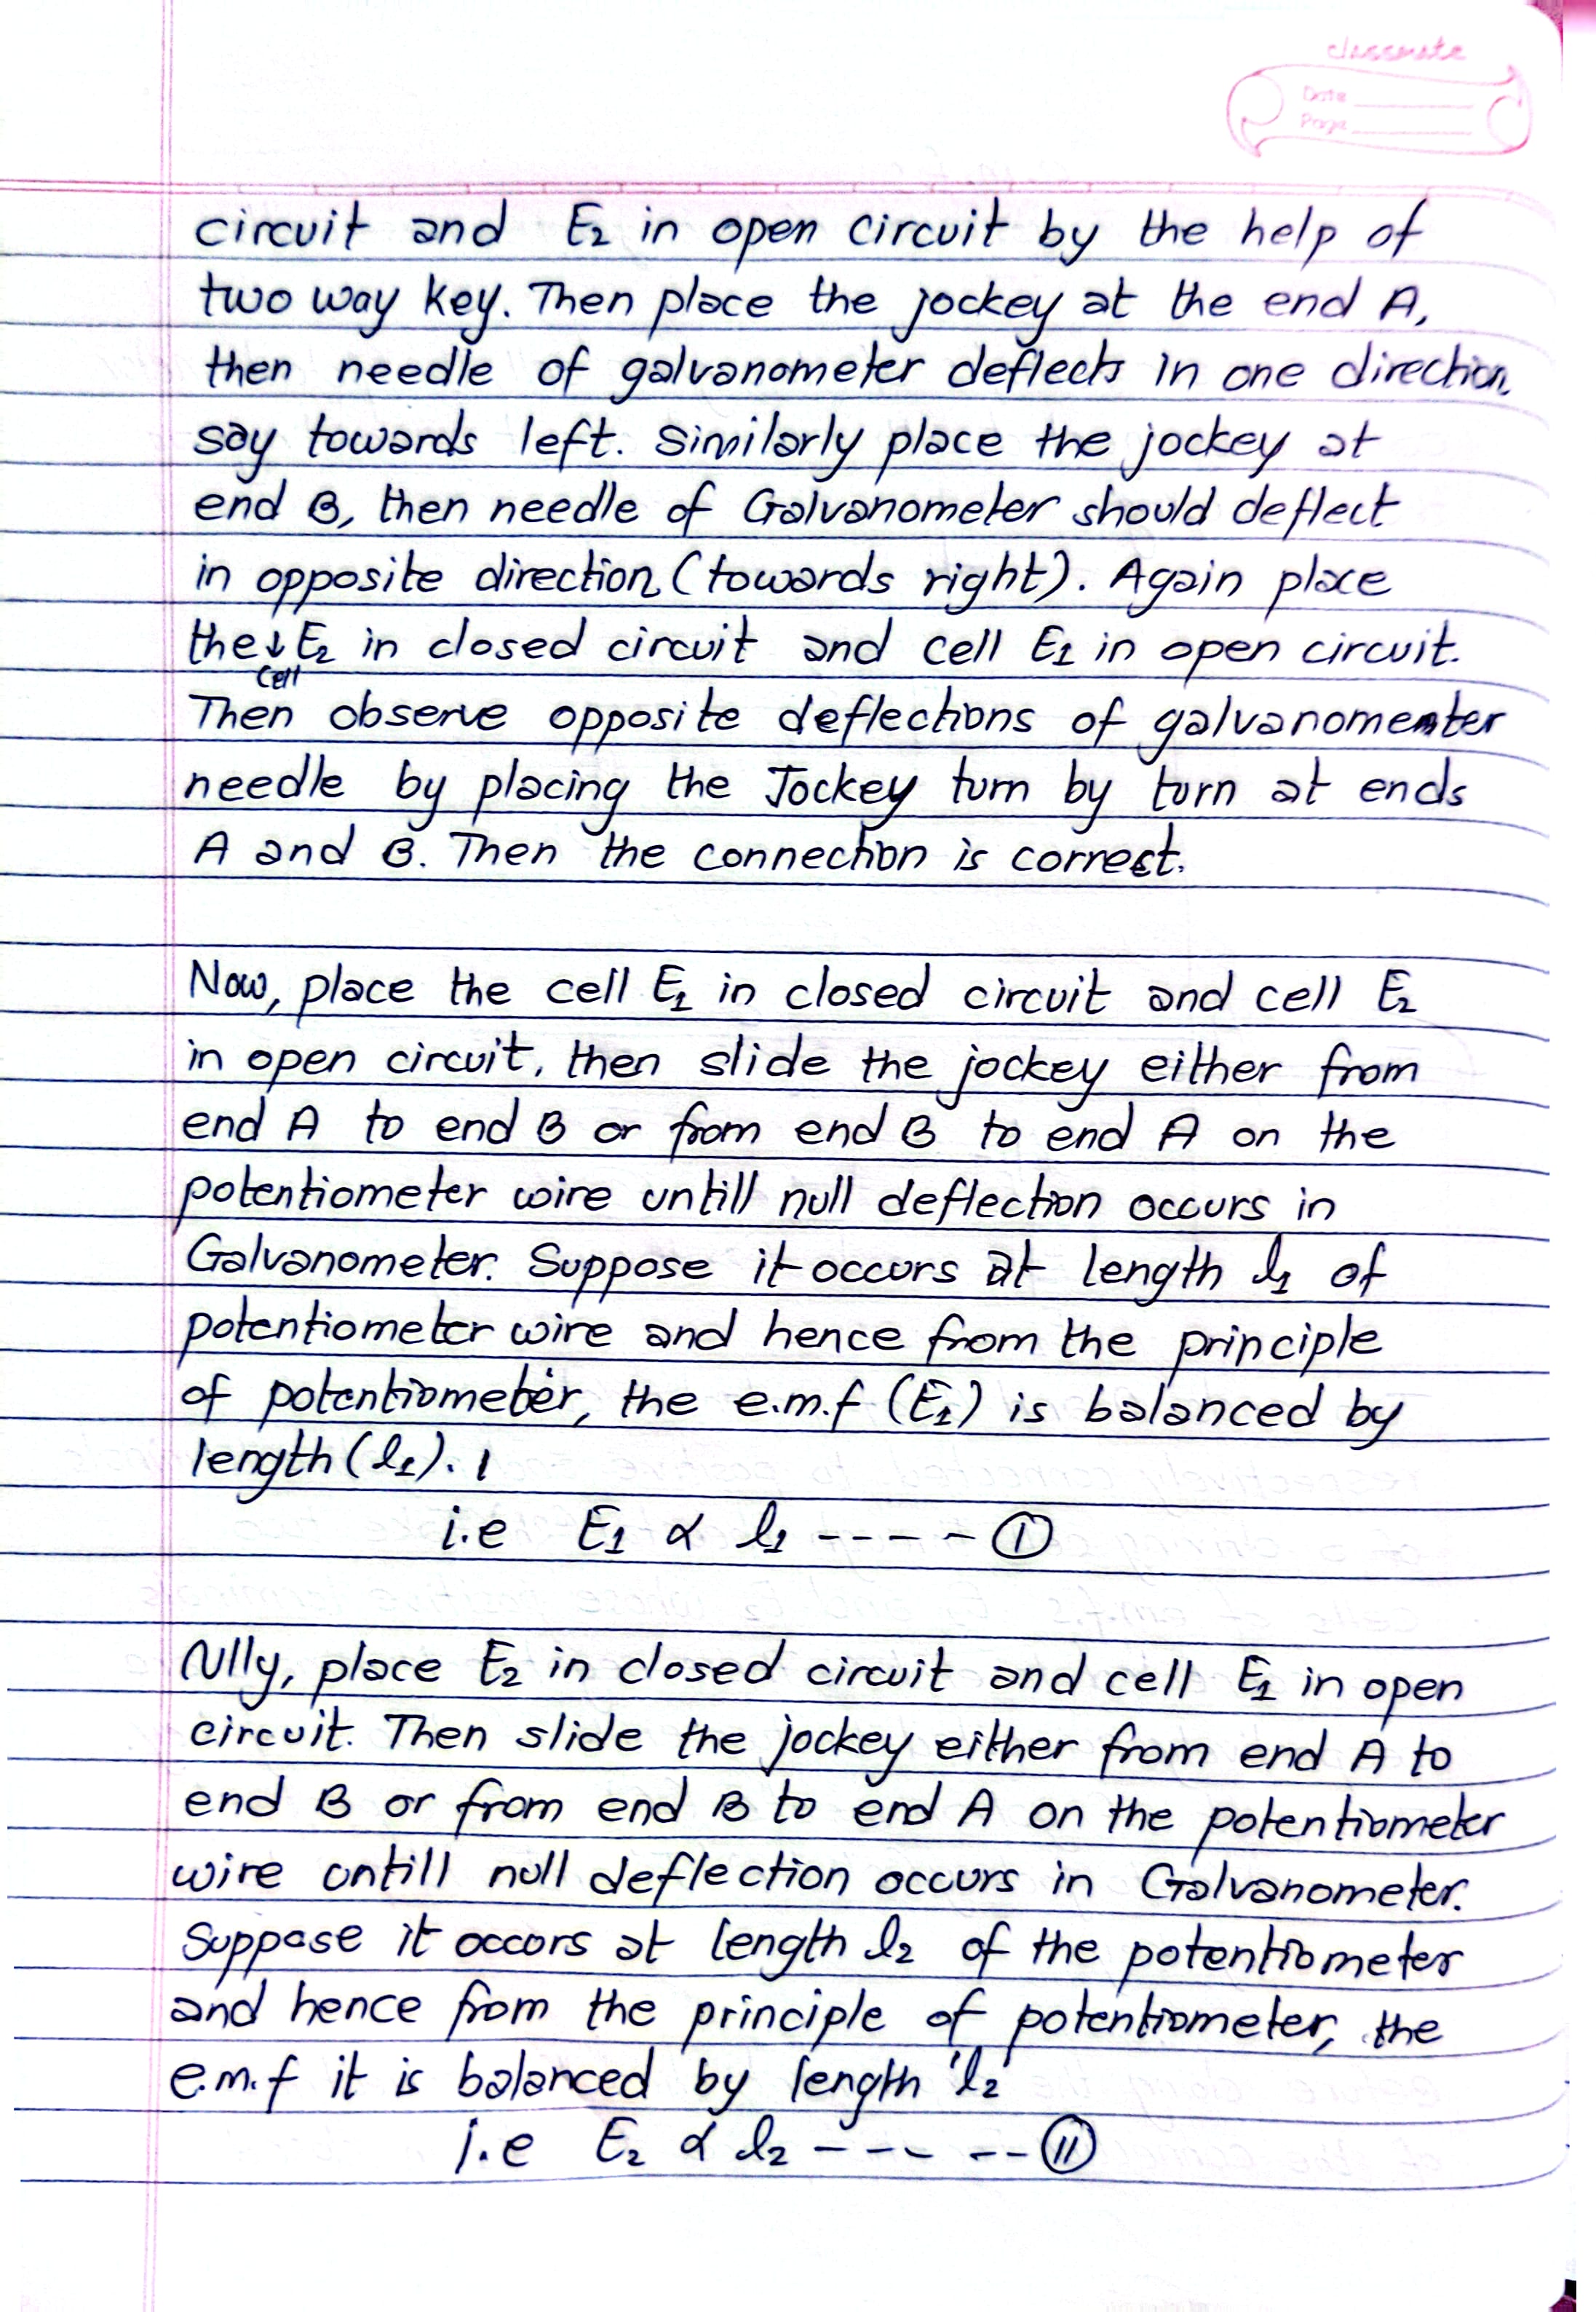 classmate
Date
Page
circuit and E₂ in open circuit by the help of
two way key. Then place the jockey at the end A,
then needle of galvanometer deflects in one direction,
say towards left. Similarly place the jockey at
end B, then needle of Galvanometer should deflect
in opposite direction (towards right). Again place
the↓E₂ in closed circuit and cell E₁ in open circuit.
cell
Then observe opposite deflections of galvanomenter
needle by placing the Jockey turn by turn at ends
A and B. Then the connection is correct.
Now, place the cell E₁ in closed circuit and cell E₂
in open circuit, then slide the jockey either from
end A to end B or from end B to end A on the
potentiometer wire untill null deflection occurs in
Galvanometer. Suppose it occurs at length l₁ of
potentiometer wire and hence from the principle
of potentiometer, the e.m.f (E₁) is balanced by
length (l₁).
i.e E₁ ∝ l₁ ----- ①
Nlly, place E₂ in closed circuit and cell E₁ in open
circuit. Then slide the jockey either from end A to
end B or from end B to end A on the potentiometer
wire untill null deflection occurs in Galvanometer.
Suppose it occurs at length l₂ of the potentiometer
and hence from the principle of potentiometer, the
e.m.f it is balanced by length 'l₂'
i.e E₂ ∝ l₂ ------ ⑪